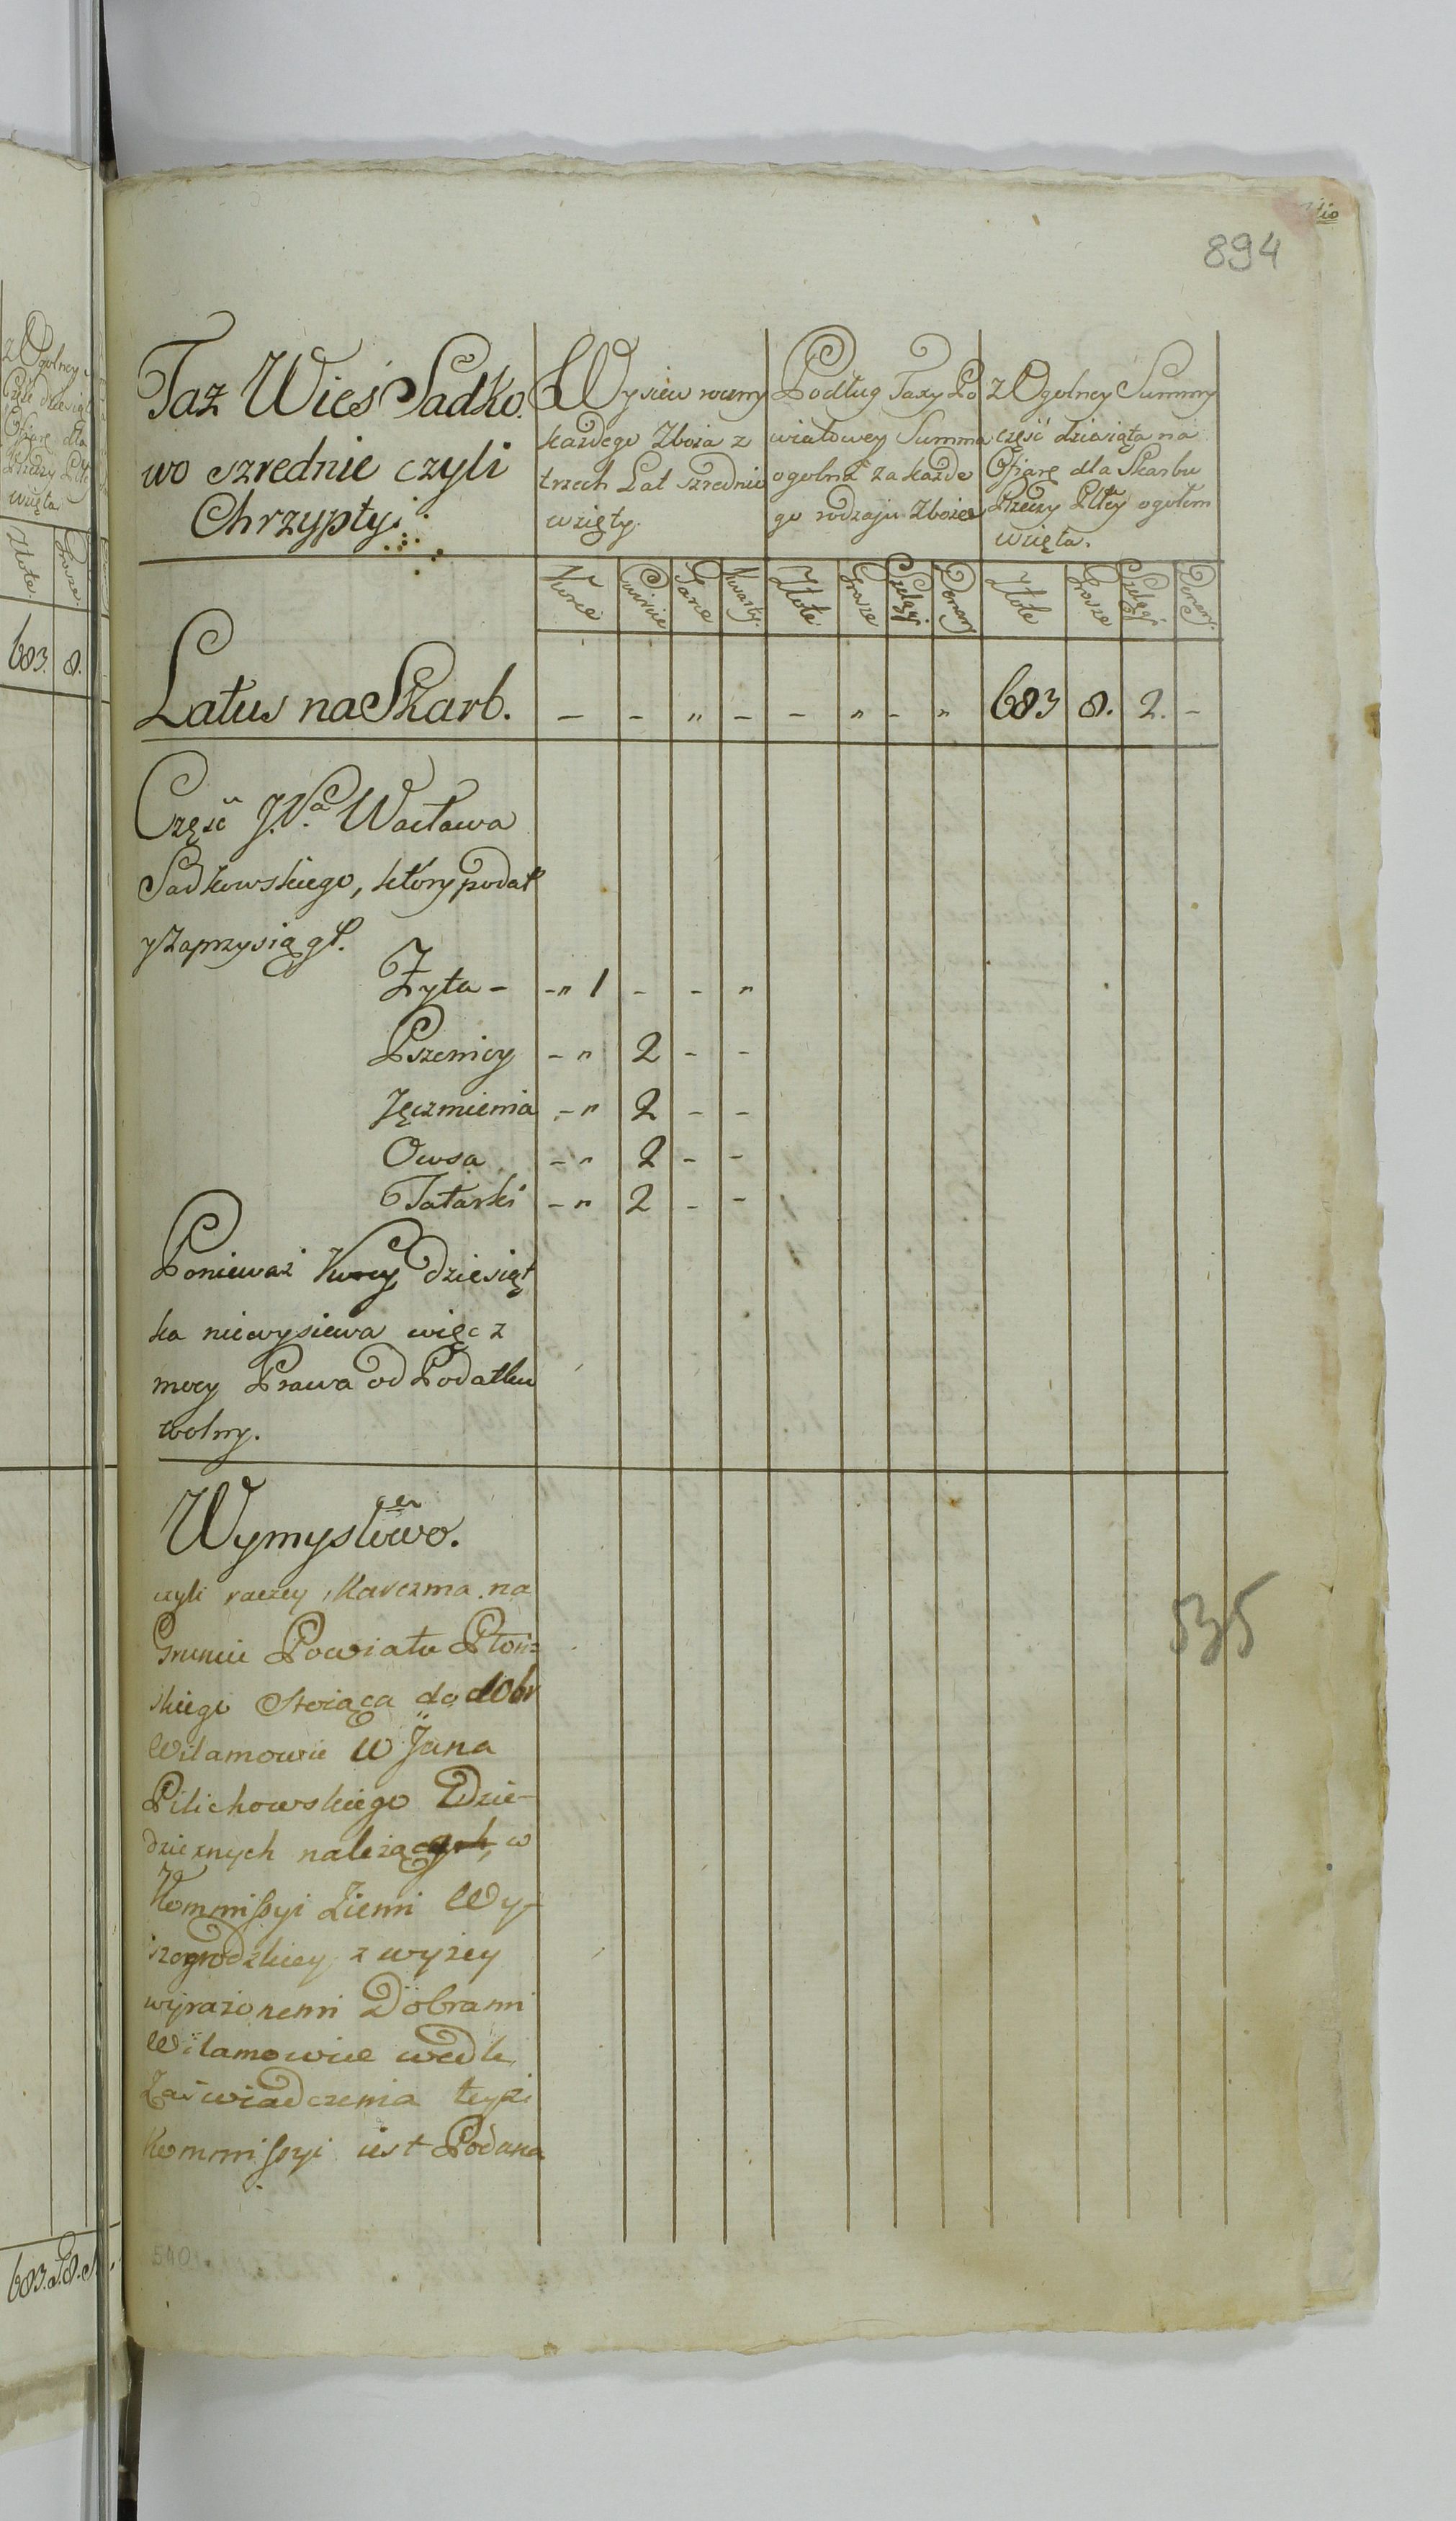 894
Taż Wieś Sadko
wo szrednie czyli
Chrzypty.
Wysiew roczny
każdego Zboża z
trzech Lat szrednio
wzięty.
Podług Taxy Po
wiatowey Summa
ogolna za każde
go rodzaju Zboże
z Ogolney Summy
część dziesiąta na
Ofiarę dla Skarbu
Rzeczy Pltey ogołem
wzięta.
Korce Cwiercie Garce Kwarty. Złote. Grosze Szelągi Denary Złote Grosze Szelągi Denary.
Latus na Skarb. – – „ – – „ – „ 683 8. 2. –
Część J. Pa Wacława
Sadkowskiego, ktory podał
y zaprzysiągł.
Żyta – – „ 1 – – „
Pszenicy – „ 2 – –
Jęczmienia – „ 2 – –
Owsa – „ 2 – –
Tatarki – „ 2 – –
Ponieważ Korcy dziesiąt
ka niewysiewa więc z
mocy Prawa od Podatku
wolny.
Wymysłowo.
czyli raczey Karczma na
Gruncie Powiatu Płoń=
skiego Stoiąca do dobr
Wilamowic W Jana
Pilichowskiego Dzie-
dzicznych należących w
Kommissyi Ziemi Wy-
szogrodzkiey z wyżey
wyrażonemi Dobrami
Wilamowice wedle
Zaświadczenia teyże
Kommissyi iest Podana
535
540
683. 8.